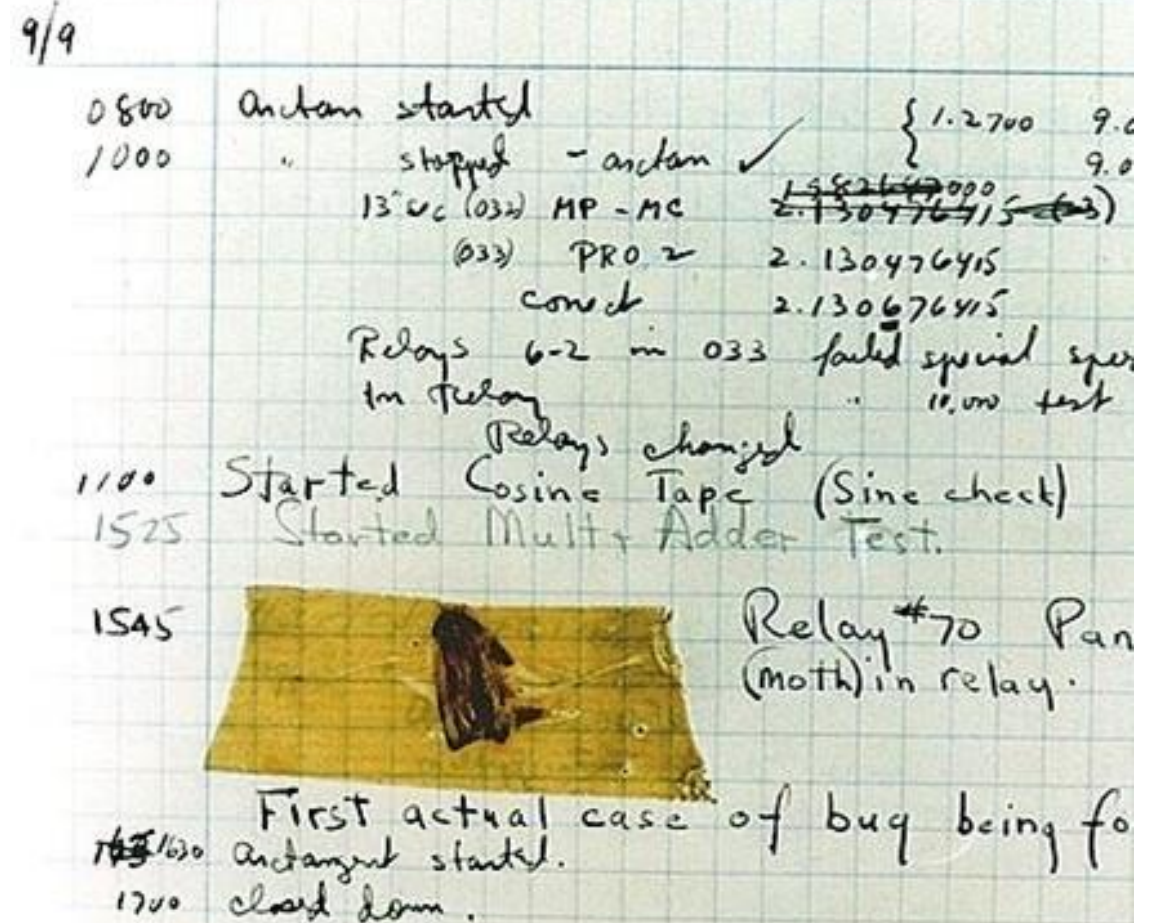 9/9
0800 arctan started { 1.2700 9.0
1000 " stopped - arctan ✓ 9.0
13"uc (032) MP - MC 2.130476415 (-3)
(033) PRO 2 2.130476415
correct 2.130676415
Relays 6-2 in 033 failed special spee
In Relay " 10,000 test
Relays changed
1100 Started Cosine Tape (Sine check)
1525 Started Mult + Adder Test.
1545 Relay #70 Pan
(moth) in relay.
First actual case of bug being fo
1630 arctangent started.
1700 closed down.